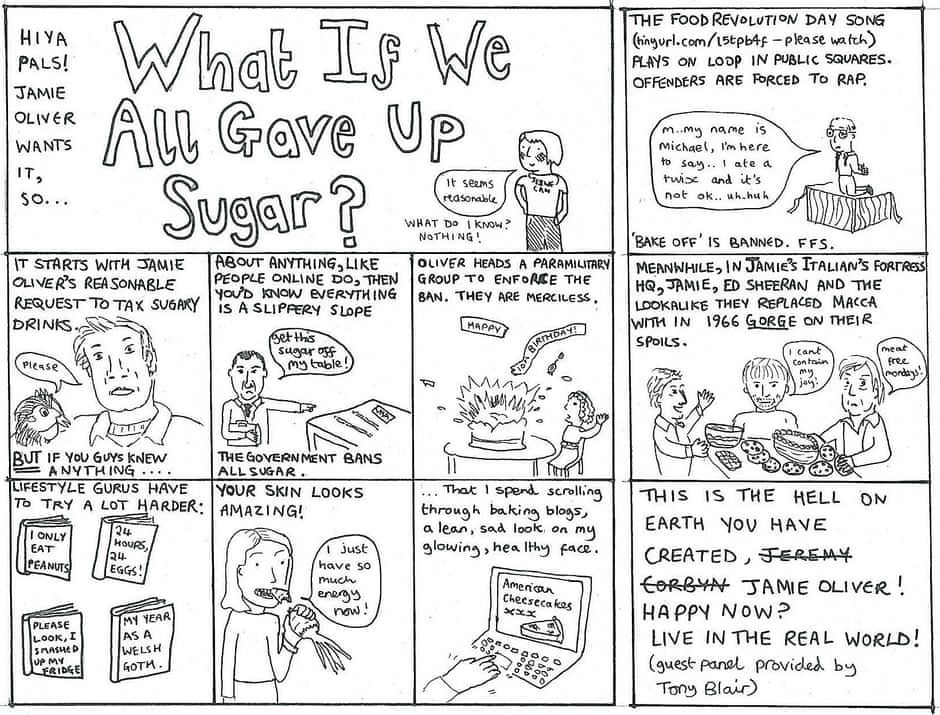 HIYA
PALS!
JAMIE
OLIVER
WANTS
IT,
SO...
What If We
All Gave Up
Sugar?
It seems
reasonable
WHAT DO I KNOW?
NOTHING!
THE FOOD REVOLUTION DAY SONG
(tinyurl.com/l5tpb4f - please watch)
PLAYS ON LOOP IN PUBLIC SQUARES.
OFFENDERS ARE FORCED TO RAP.
m..my name is
Michael, I'm here
to say.. I ate a
twix and it's
not ok.. uh.huh
'BAKE OFF' IS BANNED. FFS.
IT STARTS WITH JAMIE
OLIVER'S REASONABLE
REQUEST TO TAX SUGARY
DRINKS.
Please
BUT IF YOU GUYS KNEW
ANYTHING ....
ABOUT ANYTHING, LIKE
PEOPLE ONLINE DO, THEN
YOU'D KNOW EVERYTHING
IS A SLIPPERY SLOPE
get this
sugar off
my table!
THE GOVERNMENT BANS
ALL SUGAR.
OLIVER HEADS A PARAMILITARY
GROUP TO ENFORCE THE
BAN. THEY ARE MERCILESS.
HAPPY
10th BIRTHDAY!
MEANWHILE, IN JAMIE'S ITALIAN'S FORTRESS
HQ, JAMIE, ED SHEERAN AND THE
LOOKALIKE THEY REPLACED MACCA
WITH IN 1966 GORGE ON THEIR
SPOILS.
I can't
contain
my
joy!
meat
free
mondays!
LIFESTYLE GURUS HAVE
TO TRY A LOT HARDER:
I ONLY
EAT
PEANUTS
24
HOURS,
24
EGGS!
PLEASE
LOOK, I
SMASHED
UP MY
FRIDGE
MY YEAR
AS A
WELSH
GOTH.
YOUR SKIN LOOKS
AMAZING!
I just
have so
much
energy
now!
... That I spend scrolling
through baking blogs,
a lean, sad look on my
glowing, healthy face.
American
Cheesecakes
xxx
THIS IS THE HELL ON
EARTH YOU HAVE
CREATED, JEREMY
CORBYN JAMIE OLIVER!
HAPPY NOW?
LIVE IN THE REAL WORLD!
(guest panel provided by
Tony Blair)